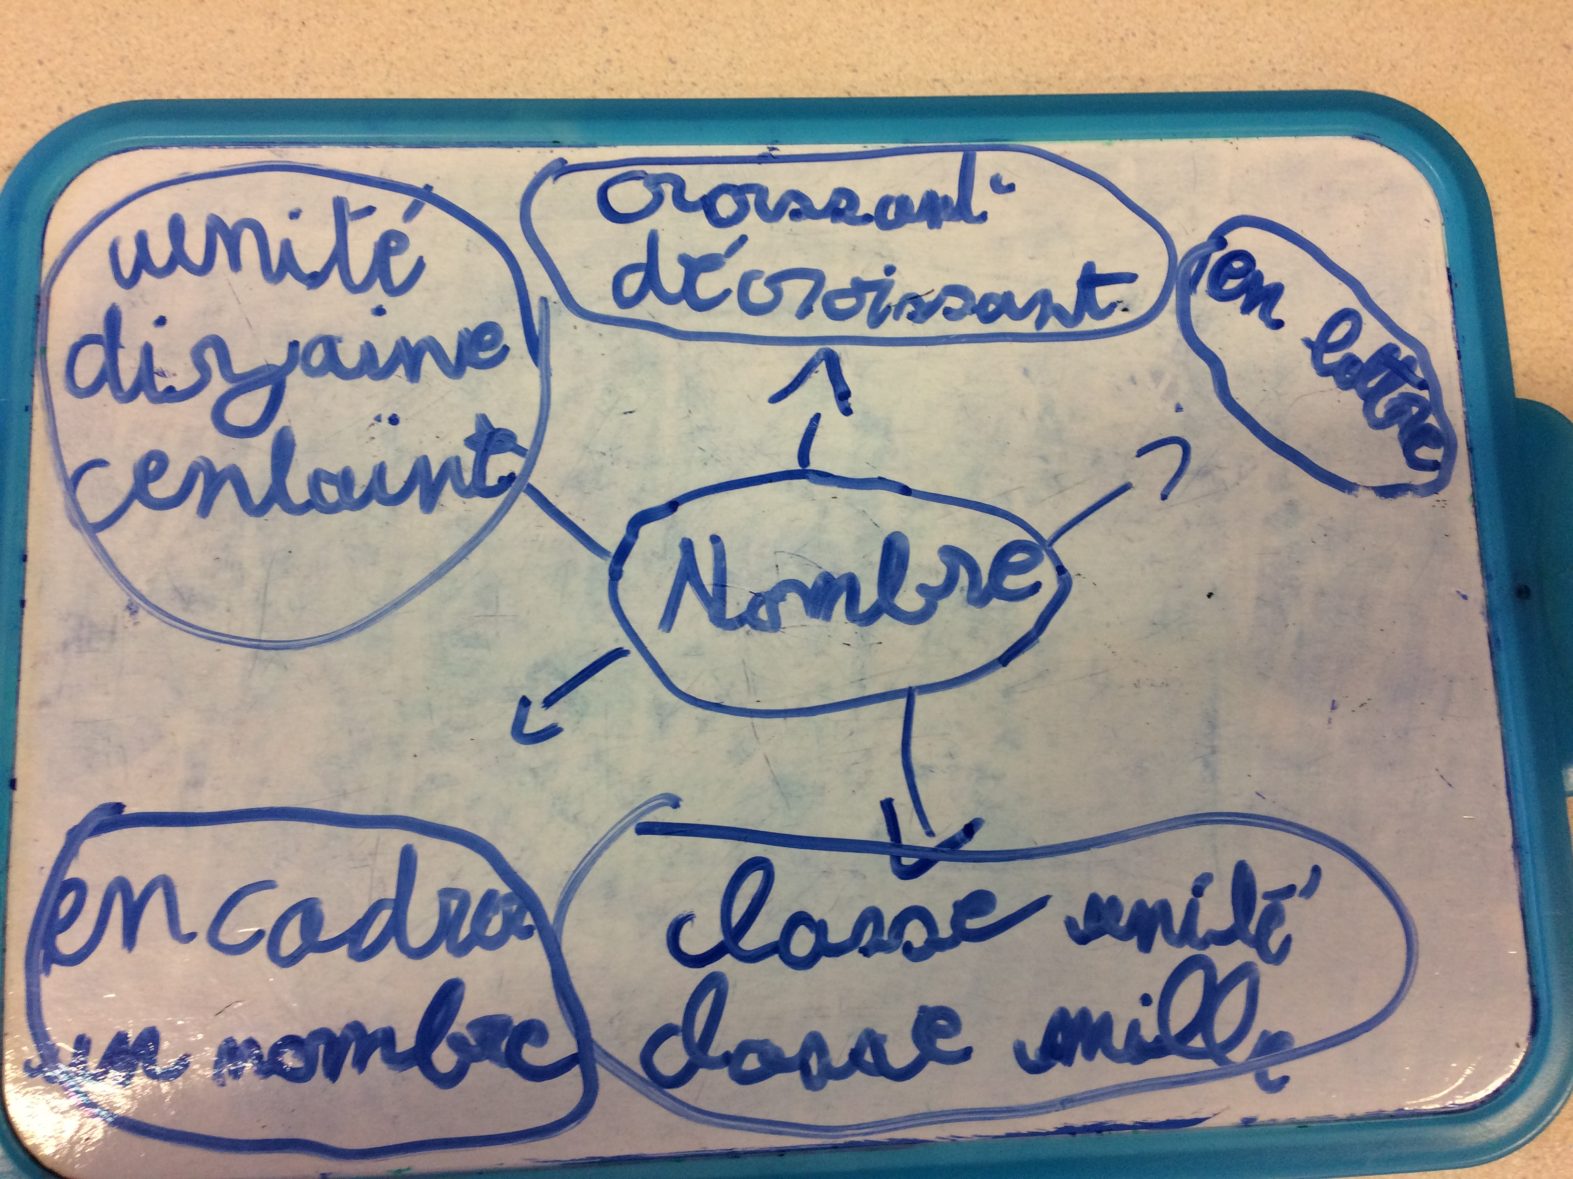 uenité
dizaine
cenlaint
croissant
décroissant
en lettre
Nombre
encadra
un nombre
classe unité
classe mille